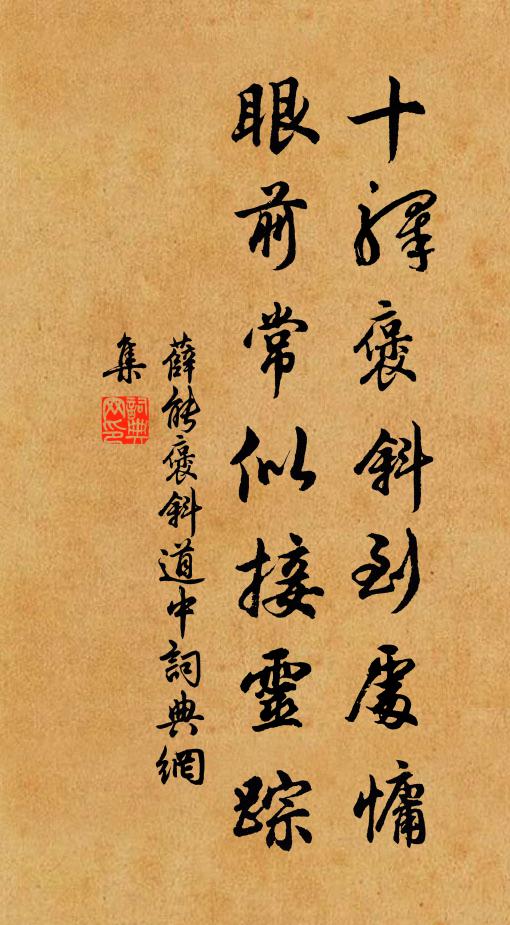 十驛褒斜到處慵
眼前常似接靈踪
薛能褒斜道中詞典網
集
詞典
网印